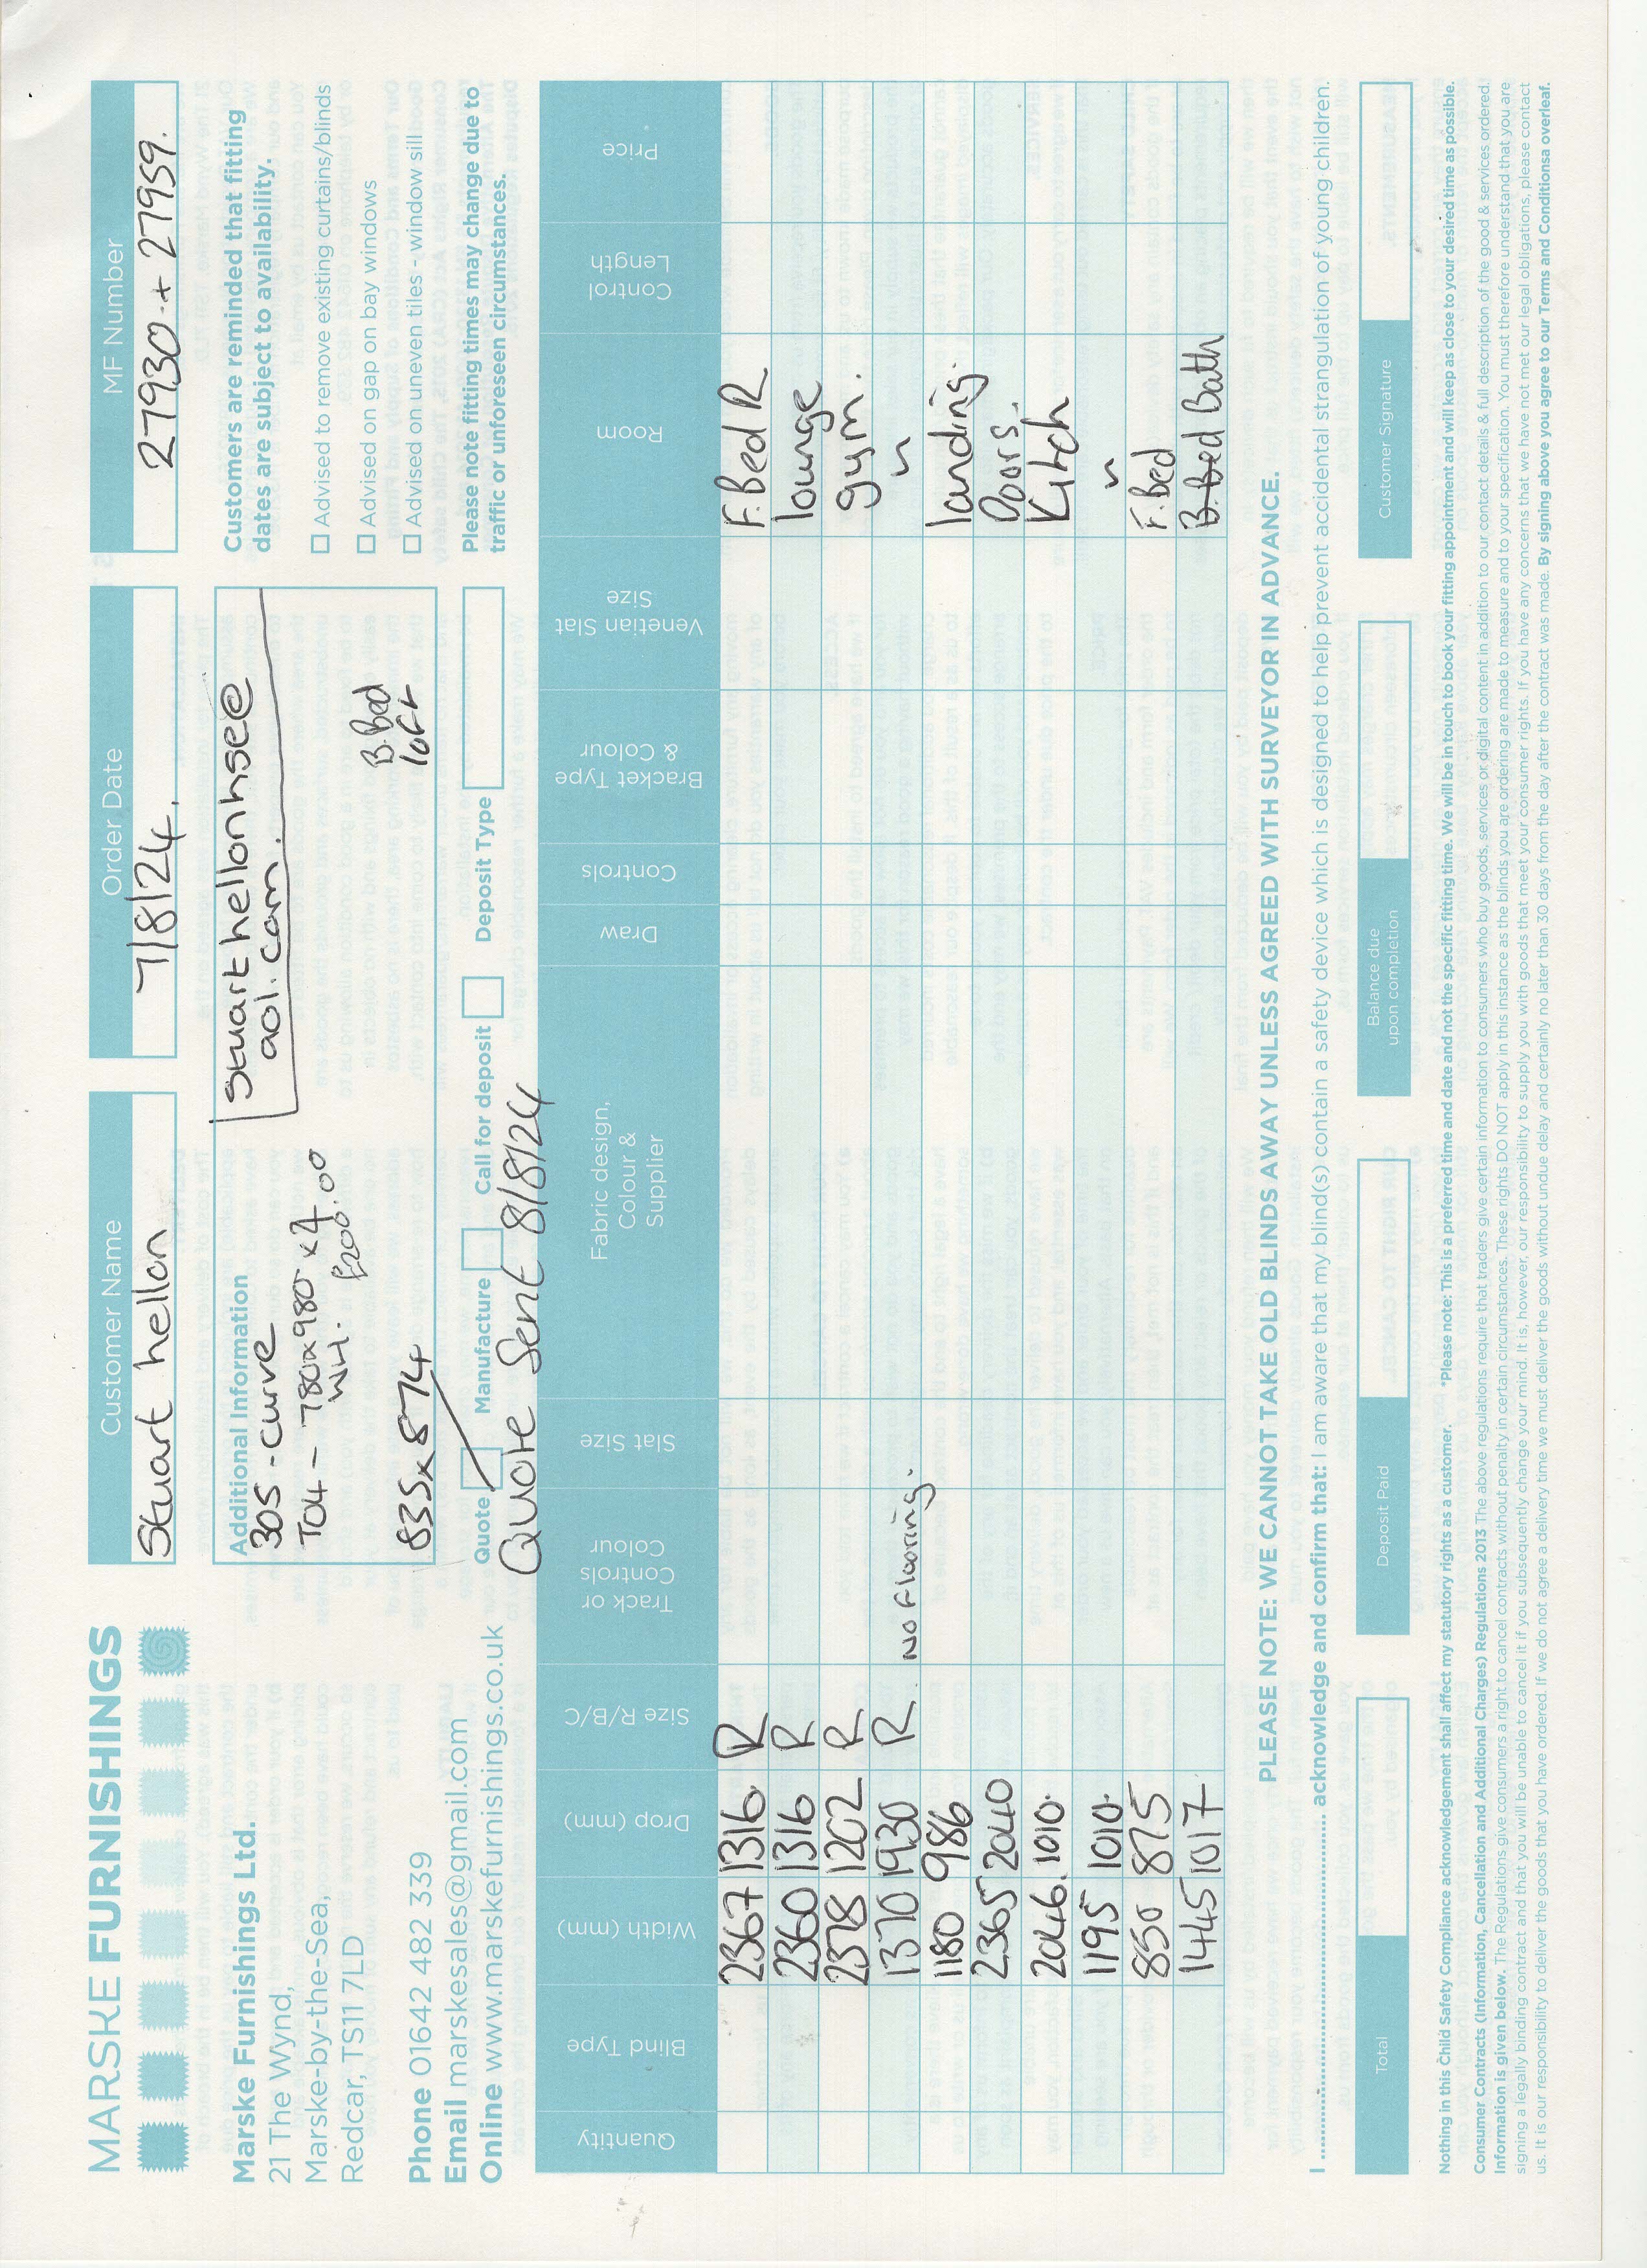 MARSKE FURNISHINGS
Marske Furnishings Ltd.
21 The Wynd,
Marske-by-the-Sea,
Redcar, TS11 7LD
Phone 01642 482 339
Email marskesales@gmail.com
Online www.marskefurnishings.co.uk
Customer Name
Stuart hellon
Order Date
7/8/24.
MF Number
27930 + 27959.
Additional Information
305 - Curve
T04 - 780x980 x4
WH. £200.00
835x874
Stuarthellonhsee@
aol.com.
B.Bed
loft
Customers are reminded that fitting
dates are subject to availability.
Advised to remove existing curtains/blinds
Advised on gap on bay windows
Advised on uneven tiles - window sill
Quote Manufacture Call for deposit Deposit Type
Please note fitting times may change due to
traffic or unforeseen circumstances.
Quote Sent 8/8/24
Quantity Blind Type Width (mm) Drop (mm) Size R/B/C Track or Controls Colour Slat Size Fabric design, Colour & Supplier Draw Controls Bracket Type & Colour Venetian Slat Size Room Control Length Price
2367 1316 R F.Bed R
2360 1316 R lounge
2378 1202 R gym.
1370 1930 R. No Flooring. "
1180 986 landing.
2365 2040 Doors.
2046. 1010. Kitch
1195 1010. "
850 875 F.Bed
1445 1017 B.Bed Bath
PLEASE NOTE: WE CANNOT TAKE OLD BLINDS AWAY UNLESS AGREED WITH SURVEYOR IN ADVANCE.
I .................... acknowledge and confirm that: I am aware that my blind(s) contain a safety device which is designed to help prevent accidental strangulation of young children.
Total
Deposit Paid
Balance due
upon completion
Customer Signature
Nothing in this Child Safety Compliance acknowledgement shall affect my statutory rights as a customer. *Please note: This is a preferred time and date and not the specific fitting time. We will be in touch to book your fitting appointment and will keep as close to your desired time as possible.
Consumer Contracts (Information, Cancellation and Additional Charges) Regulations 2013 The above regulations require that traders give certain information to consumers who buy goods, services or digital content in addition to our contact details & full description of the good & services ordered.
Information is given below. The Regulations give consumers a right to cancel contracts without penalty in certain circumstances. These rights DO NOT apply in this instance as the blinds you are ordering are made to measure and to your specification. You must therefore understand that you are
signing a legally binding contract and that you will be unable to cancel it if you subsequently change your mind. It is, however, our responsibility to supply you with goods that meet your consumer rights. If you have any concerns that we have not met our legal obligations, please contact
us. It is our responsibility to deliver the goods that you have ordered. If we do not agree a delivery time we must deliver the goods without undue delay and certainly no later than 30 days from the day after the contract was made. By signing above you agree to our Terms and Conditionsa overleaf.